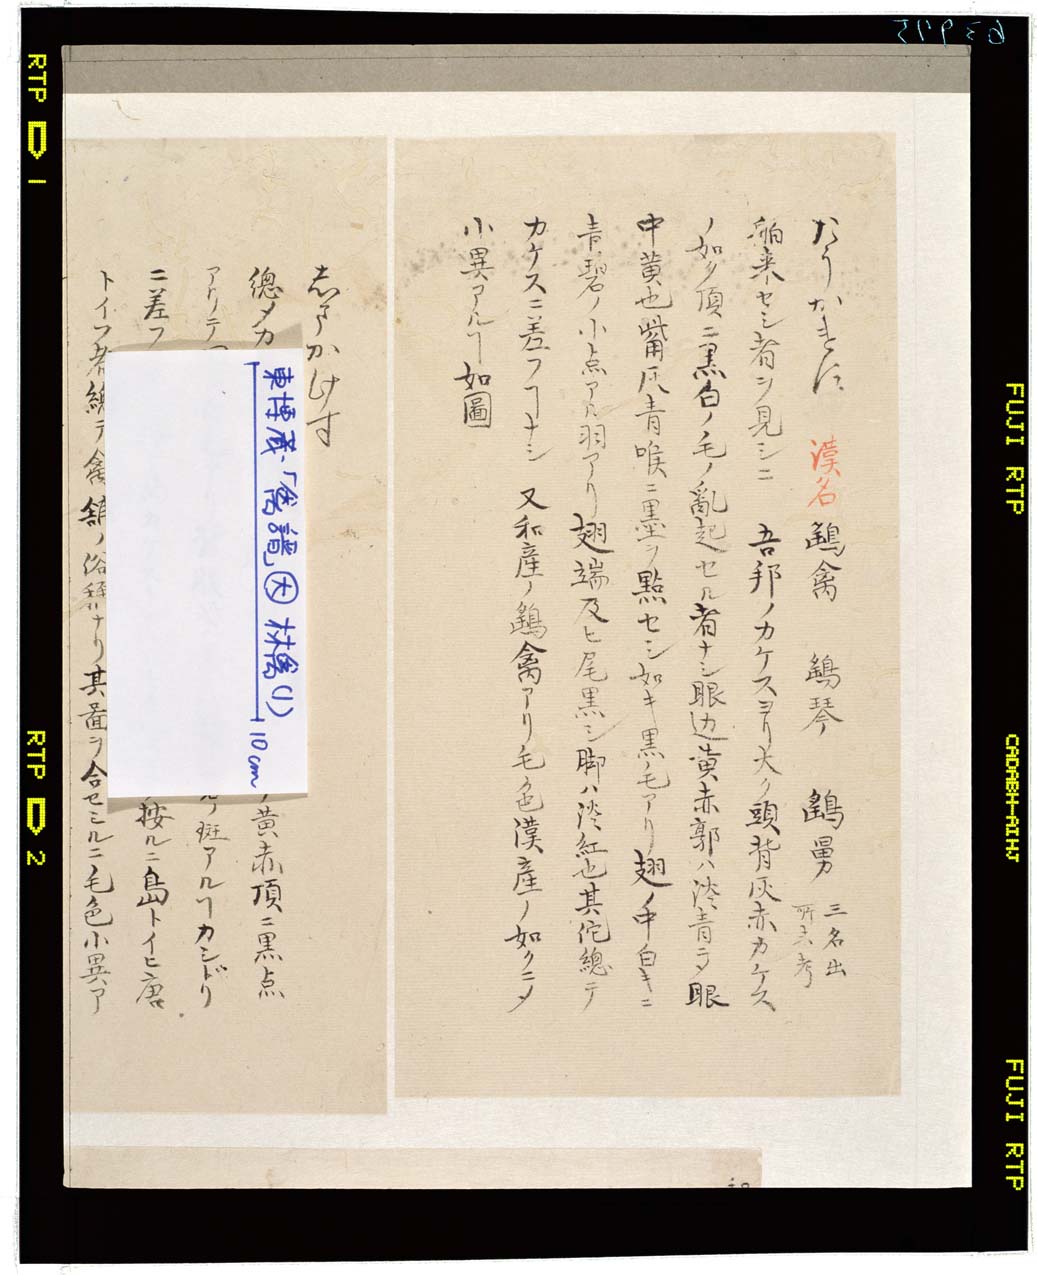 漢名 鷁禽 鷁琴 鷁勇 三名出
所玄考
舶来セシ者ヲ見シニ 吾邦ノカケスヨリ大ク頭背灰赤カケス
ノ如ク頂ニ黒白ノ毛ノ亂起セル者ナシ眼辺黄赤郭ハ淡青ラメ眼
中黄也觜灰青喉ニ墨ヲ點セシ如キ黒毛アリ翅ノ中白キニ
青碧ノ小点アル羽アリ翅端及ヒ尾黒シ脚ハ淡紅也其佗總テ
カケスニ差フヿナシ 又和産ノ鷁禽アリ毛色漢産ノ如クニメ
小異アルヿ如圖
志まかけす
總メカ 黄赤頂ニ黒点
アリテ 斑アルヿカシドリ
ニ差フ 按ルニ島トイヒ唐
トイフ者總テ禽舗ノ俗稱ナリ其圖ヲ合セミルニ毛色小異ア
東博蔵・「禽譜㊅ 林禽(1)
10cm
63975
RTP 1
RTP 2
FUJI RTP
FUJI RTP